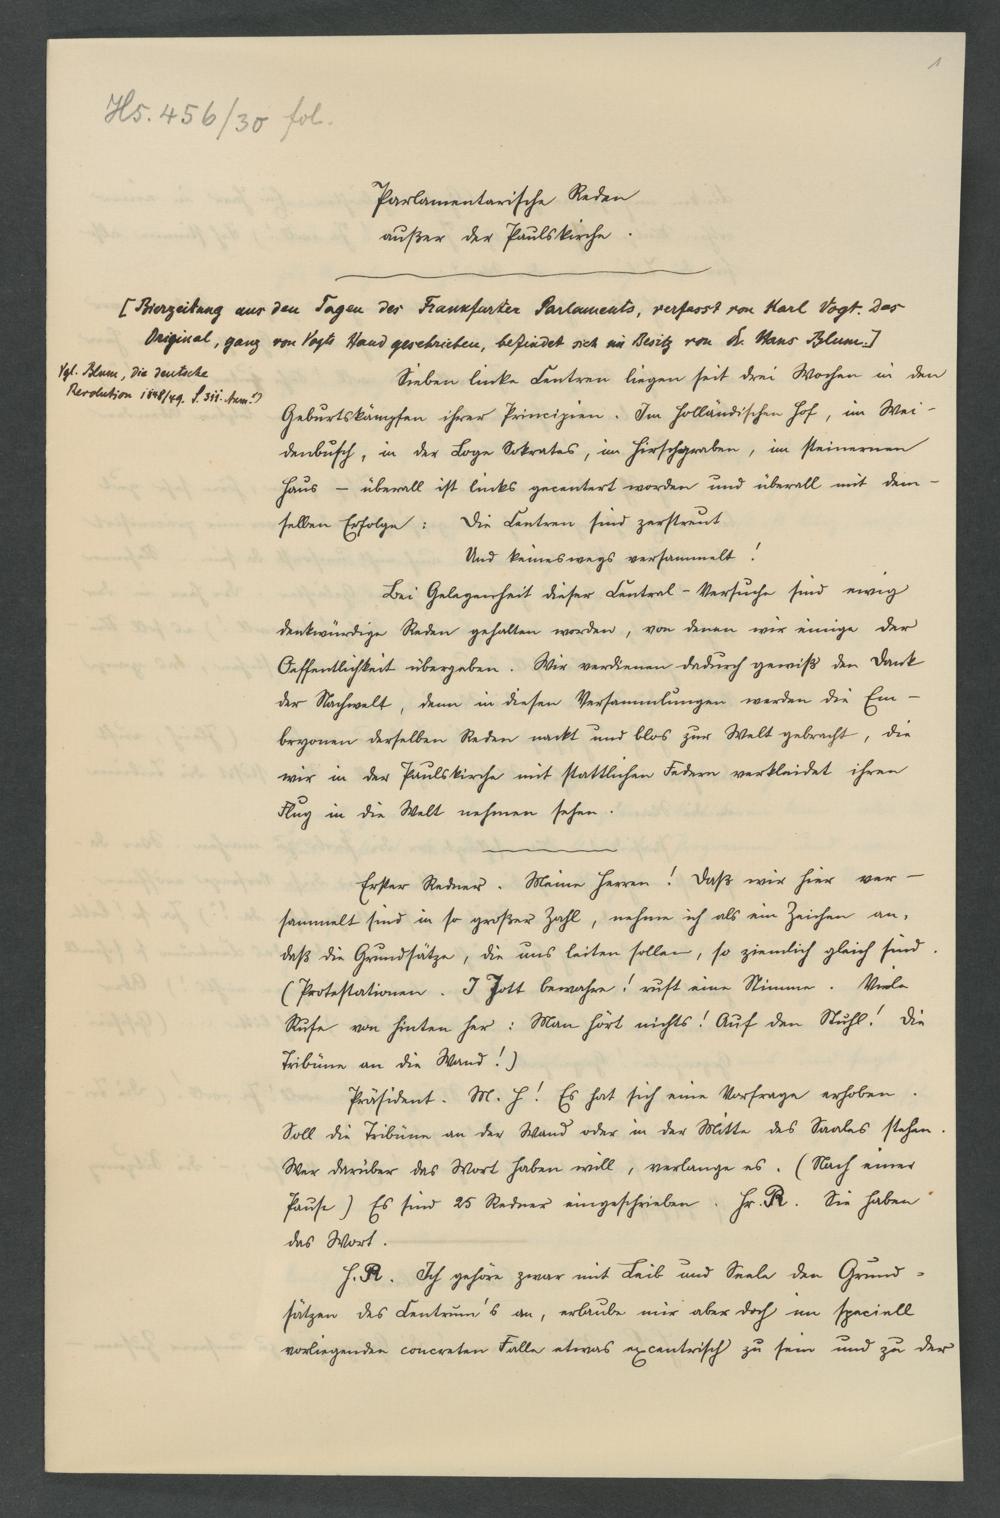 1
Hs. 456/30 fol.
Parlamentarische Reden
außer der Paulskirche.
[Bierzeitung aus den Tagen des Frankfurter Parlaments, verfasst von Karl Vogt. Das
Original, ganz von Vogts Hand geschrieben, befindet sich im Besitz von Dr. Hans Blum.]
Vgl. Blum, die deutsche
Revolution 1848/49. S. 311. Anm. 1)
Sieben linke Centren liegen seit drei Wochen in den
Geburtskämpfen ihrer Principien. Im holländischen Hof, im Wei-
denbusch, in der Loge Sokrates, im Hirschgraben, im steinernen
Haus – überall ist links gecentert worden und überall mit dem-
selben Erfolge: Die Centren sind zerstreut
Und keineswegs versammelt!
Bei Gelegenheit dieser Central-Versuche sind ewig
denkwürdige Reden gehalten worden, von denen wir einige der
Oeffentlichkeit übergeben. Wir verdienen dadurch gewiß den Dank
der Nachwelt, denn in diesen Versammlungen werden die Em-
bryonen derselben Reden nackt und blos zur Welt gebracht, die
wir in der Paulskirche mit stattlichen Federn verkleidet ihren
Flug in die Welt nehmen sehen.
Erster Redner. Meine Herren! Daß wir hier ver-
sammelt sind in so großer Zahl, nehme ich als ein Zeichen an,
daß die Grundsätze, die uns leiten sollen, so ziemlich gleich sind.
(Protestationen. I Jott bewahre! ruft eine Stimme. Viele
Rufe von hinten her: Man hört nichts! Auf den Stuhl! Die
Tribüne an die Wand!)
Präsident. M. H! Es hat sich eine Vorfrage erhoben.
Soll die Tribüne an der Wand oder in der Mitte des Saales stehen.
Wer darüber das Wort haben will, verlange es. (Nach einer
Pause) Es sind 25 Redner eingeschrieben. Hr. R. Sie haben
das Wort.
H. R. Ich gehöre zwar mit Leib und Seele den Grund-
sätzen des Centrum's an, erlaube mir aber doch im speciell
vorliegenden concreten Falle etwas excentrisch zu sein und zu der